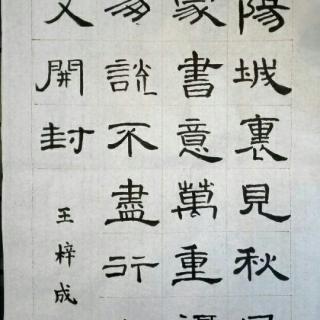 陽城裏見秋
家書意萬重
說不盡行
又開封
王梓成